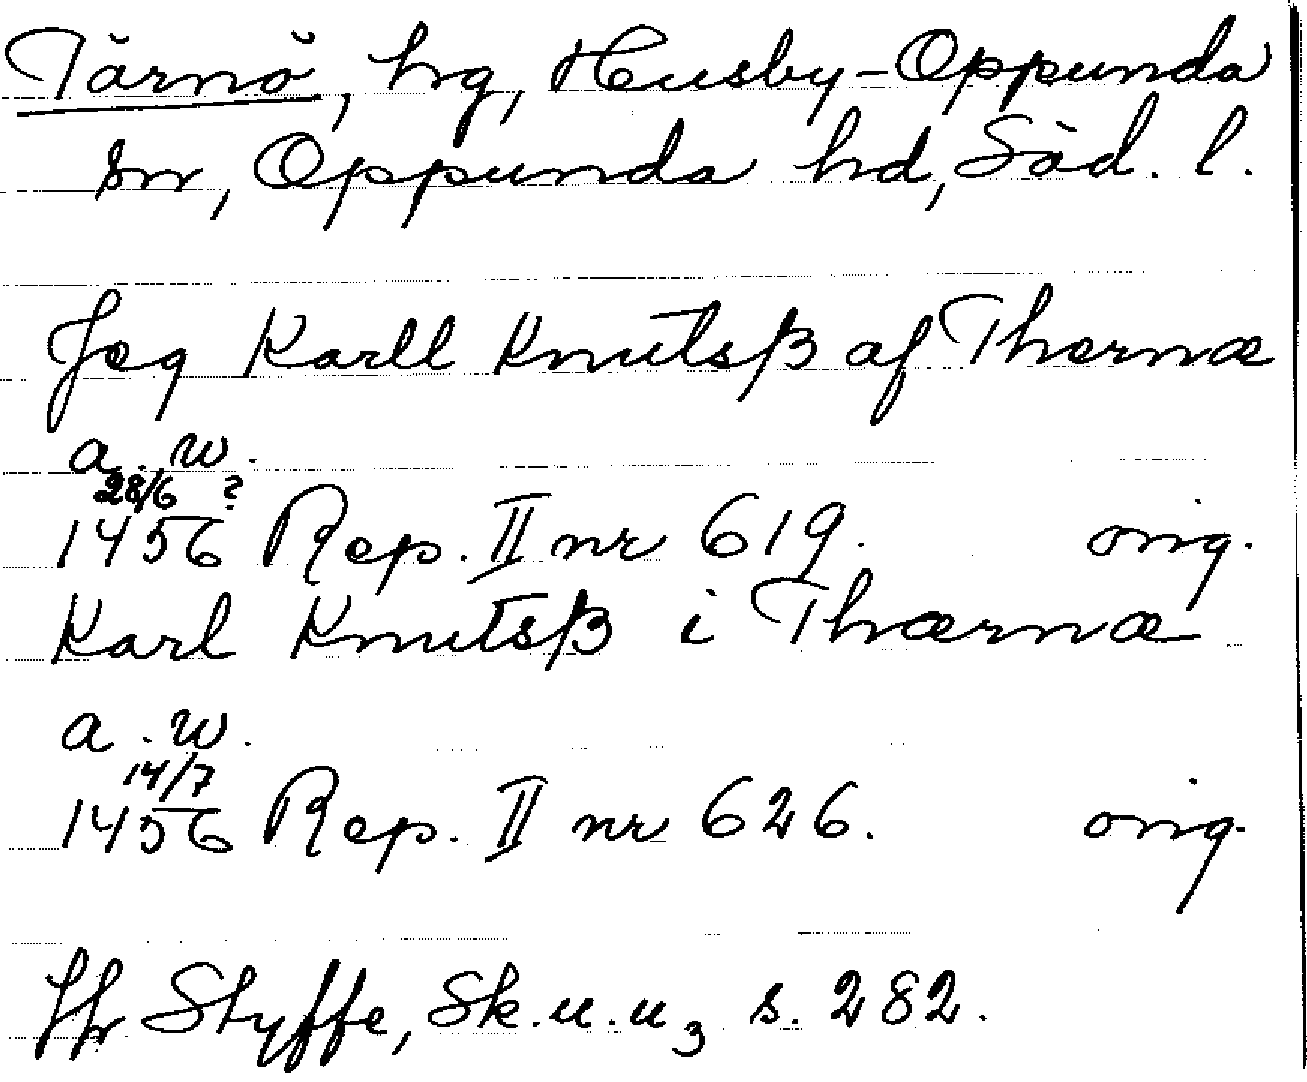 Tärnö, hg, Husby-Oppunda
sn, Oppunda hd, Söd. l.
Jeg Karll Knutsß af Thernæ
a. w.
28/6 ?
1456 Rep. II nr 619. orig.
Karl Knutsß i Thærnæ
a. w.
14/7
1456 Rep. II nr 626. orig.
Jfr Styffe, Sk.u.u3 s. 282.